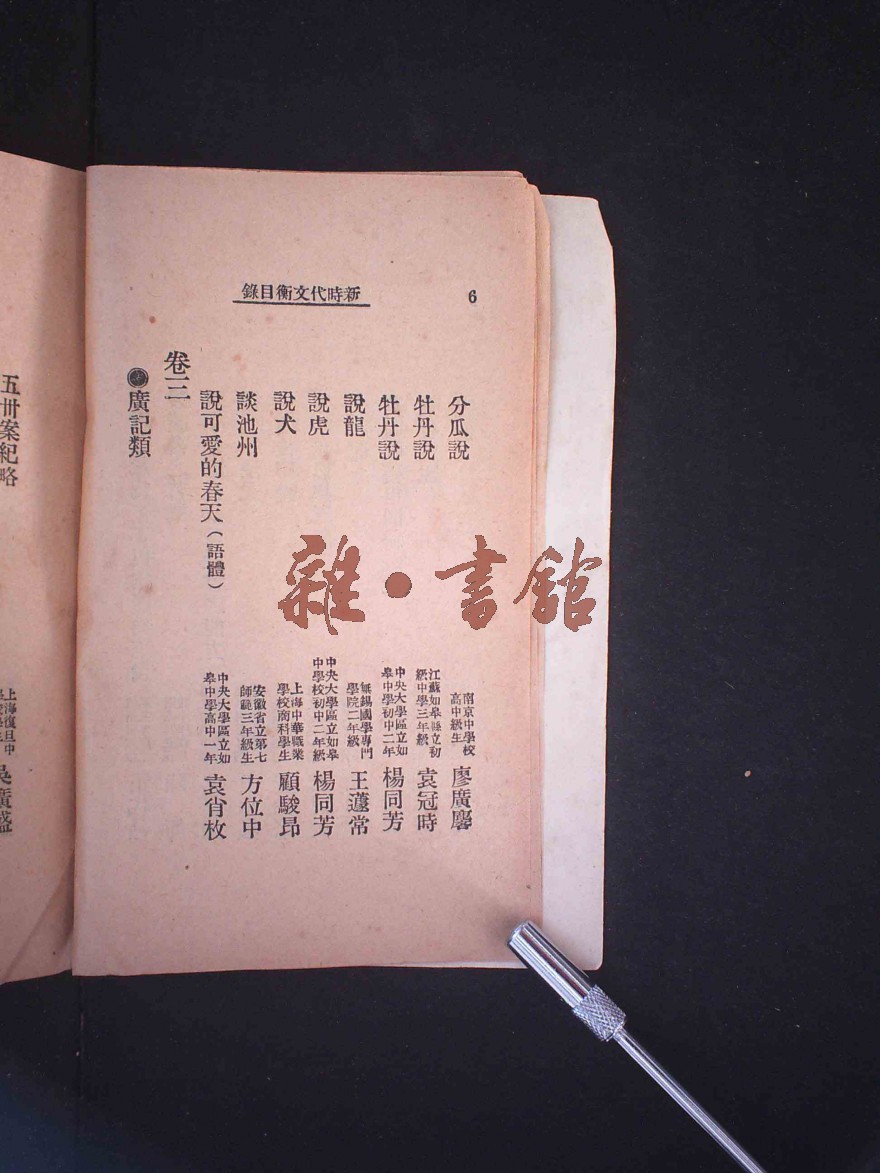 新時代文衡目錄
6
分瓜說
南京中學校
高中級生
廖廣麐
牡丹說
江蘇如皋縣立初
級中學三年級
袁冠時
牡丹說
中央大學區立如
皋中學初中二年
楊同芳
說龍
無錫國學專門
學院二年級
王蘧常
說虎
中央大學區立如皋
中學校初中二年級
楊同芳
說犬
上海中華職業
學校商科學生
顧駿昂
談池州
安徽省立第七
師範三年級生
方位中
說可愛的春天（語體）
中央大學區立如
皋中學高中一年
袁肖枚
卷三
廣記類
五卅案紀略
上海復旦中
吳廣盛
雜·書館